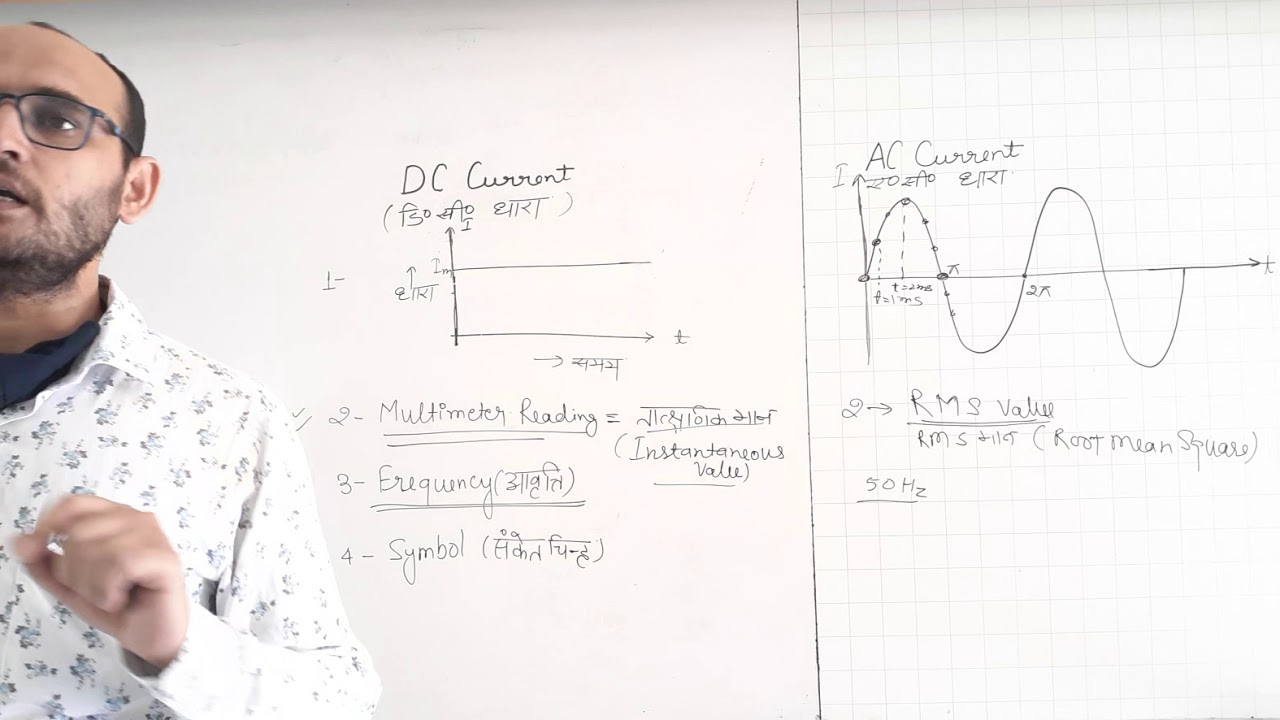 DC Current
(डि० सी० धारा)
I
1-
Im
↑
धारा
t
→ समय
2- Multimeter Reading = तात्क्षणिक मान
(Instantaneous
Value)
3- Erequency (आवृति)
4- Symbol (संकेत चिन्ह)
AC Current
I ए० सी० धारा
π
t=2ms
t=1ms
2π
t
2→ RMS Value
RMS मान (Root mean Square)
50Hz